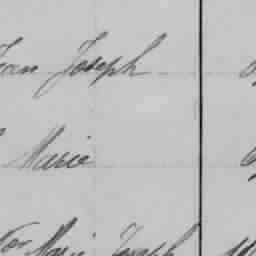 Jean Joseph
Marie
Marie Joseph